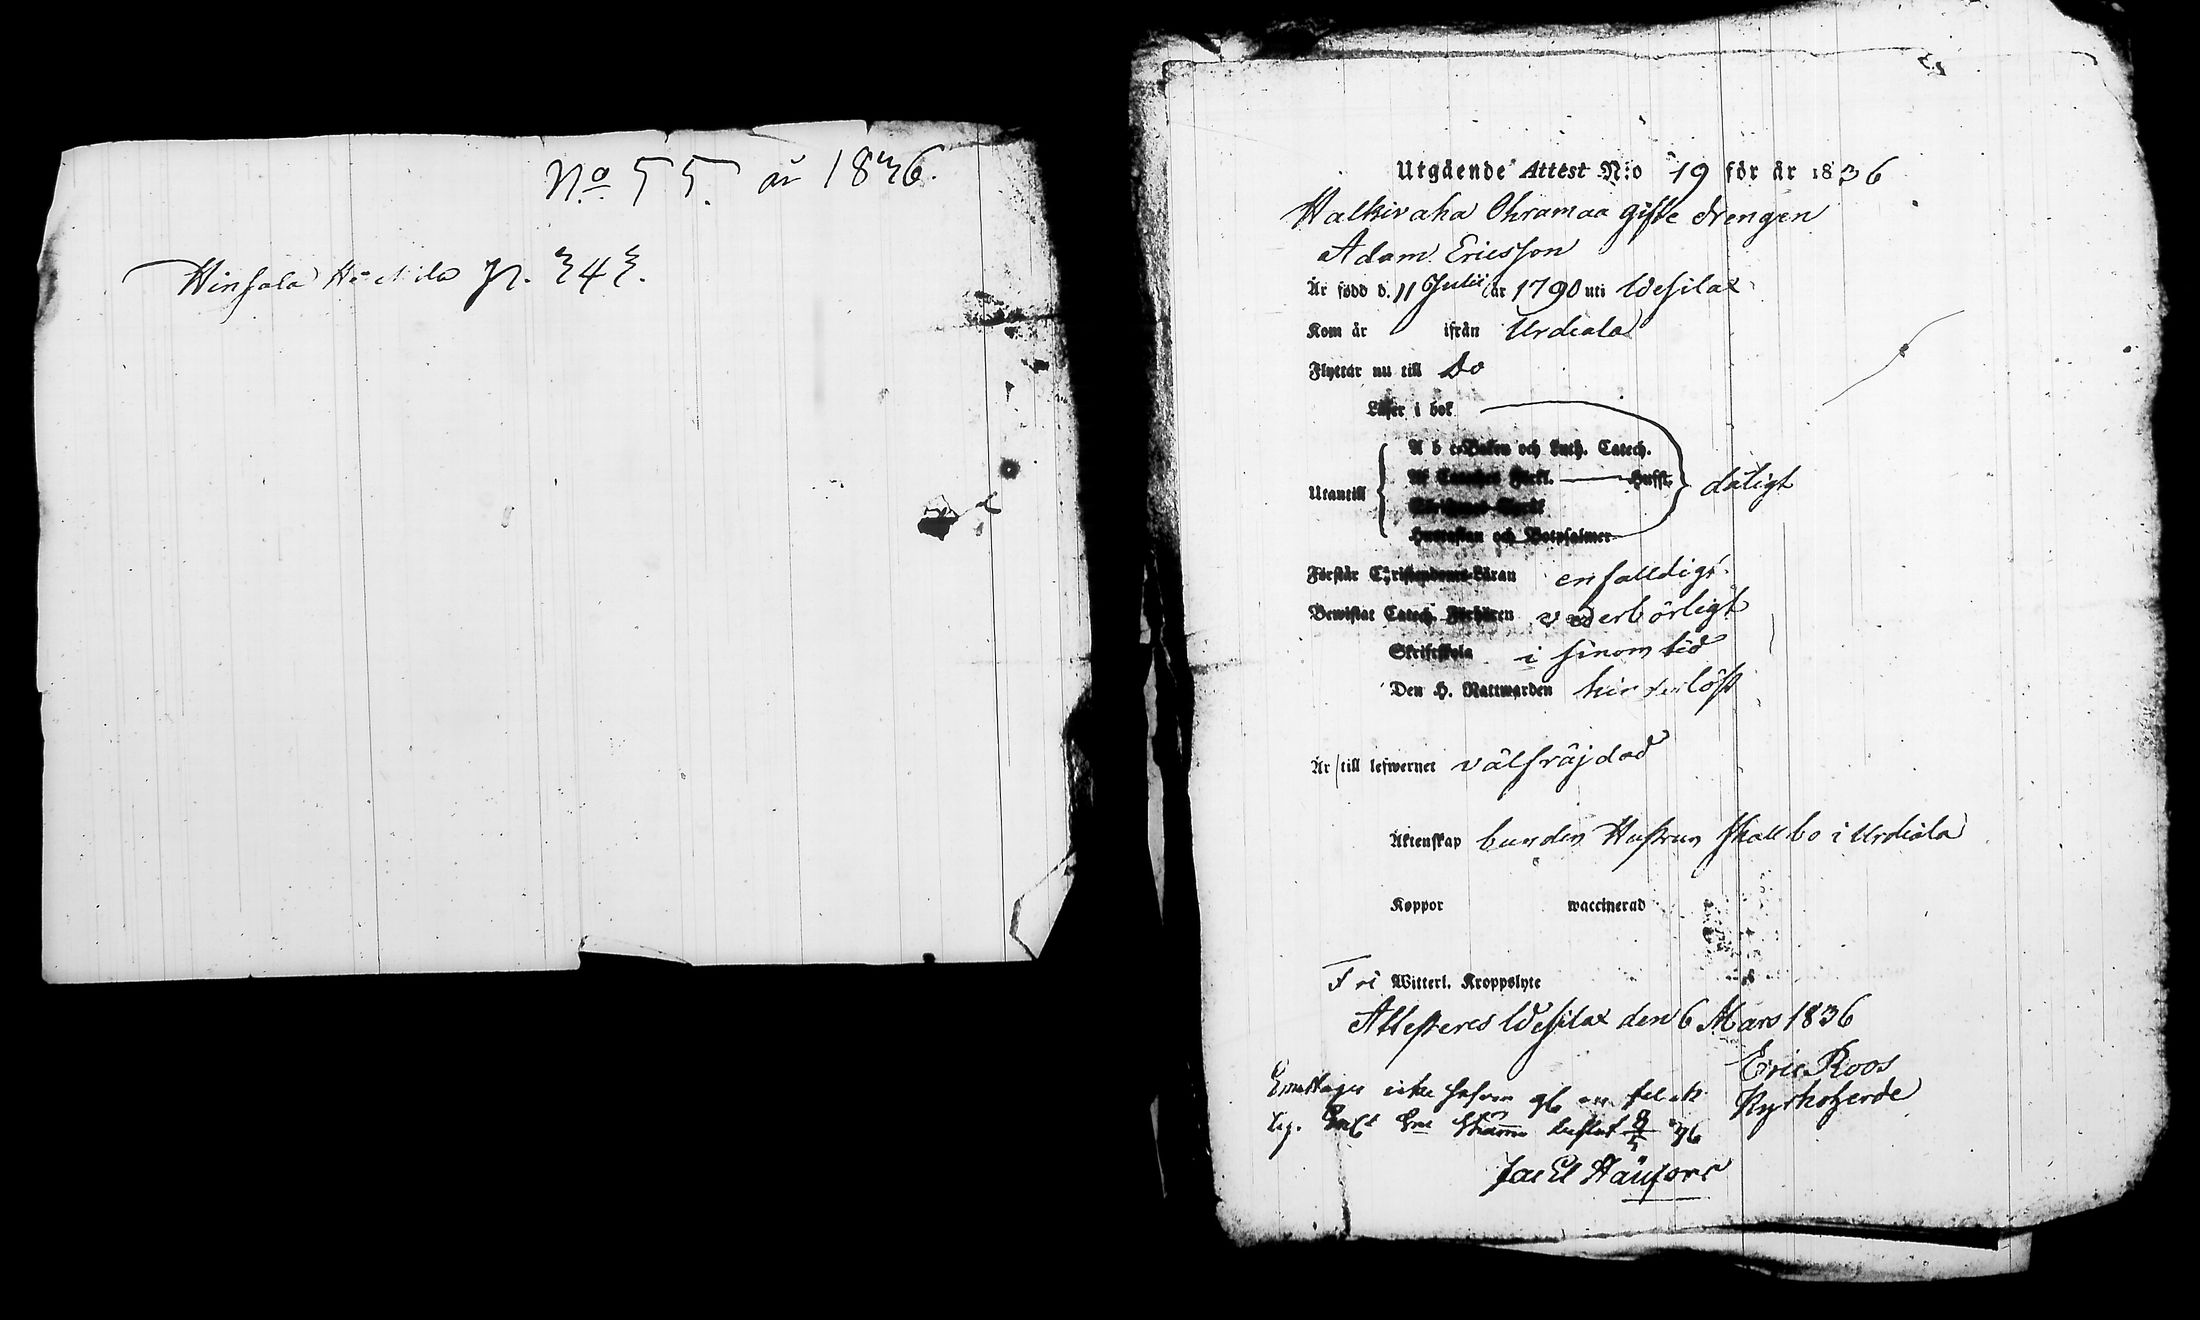 No 55. år 1836.
Hinsala Heikkilä p. 343.
Utgående Attest N:o 19 för år 1836
Halkivaha Ohramaa gifte drengen
Adam Ericsson
Är född d. 11 Julii år 1790 uti Wesilax
Kom år ifrån Urdiala
Flyttar nu till Do
Läser i bok
A b c-Boken och Luth. Catech.
Utantill dåligt
Hustaflan och Botpsalmer
Förstår Christendoms-Läran enfalldigt.
Bewistat Catech. Förhören vederbörligt
Skriftskola i sinom tid
Den H. Nattwarden hinderlöst
Är till lefwernet välfräjdad
Äktenskap bunden Hustrun skall bo i Urdiala
Koppor waccinerad
Fri Witterl. Kroppslyte
Attesteras Wesilax den 6 Mars 1836
Eric Roos
Kyrkoherde
36